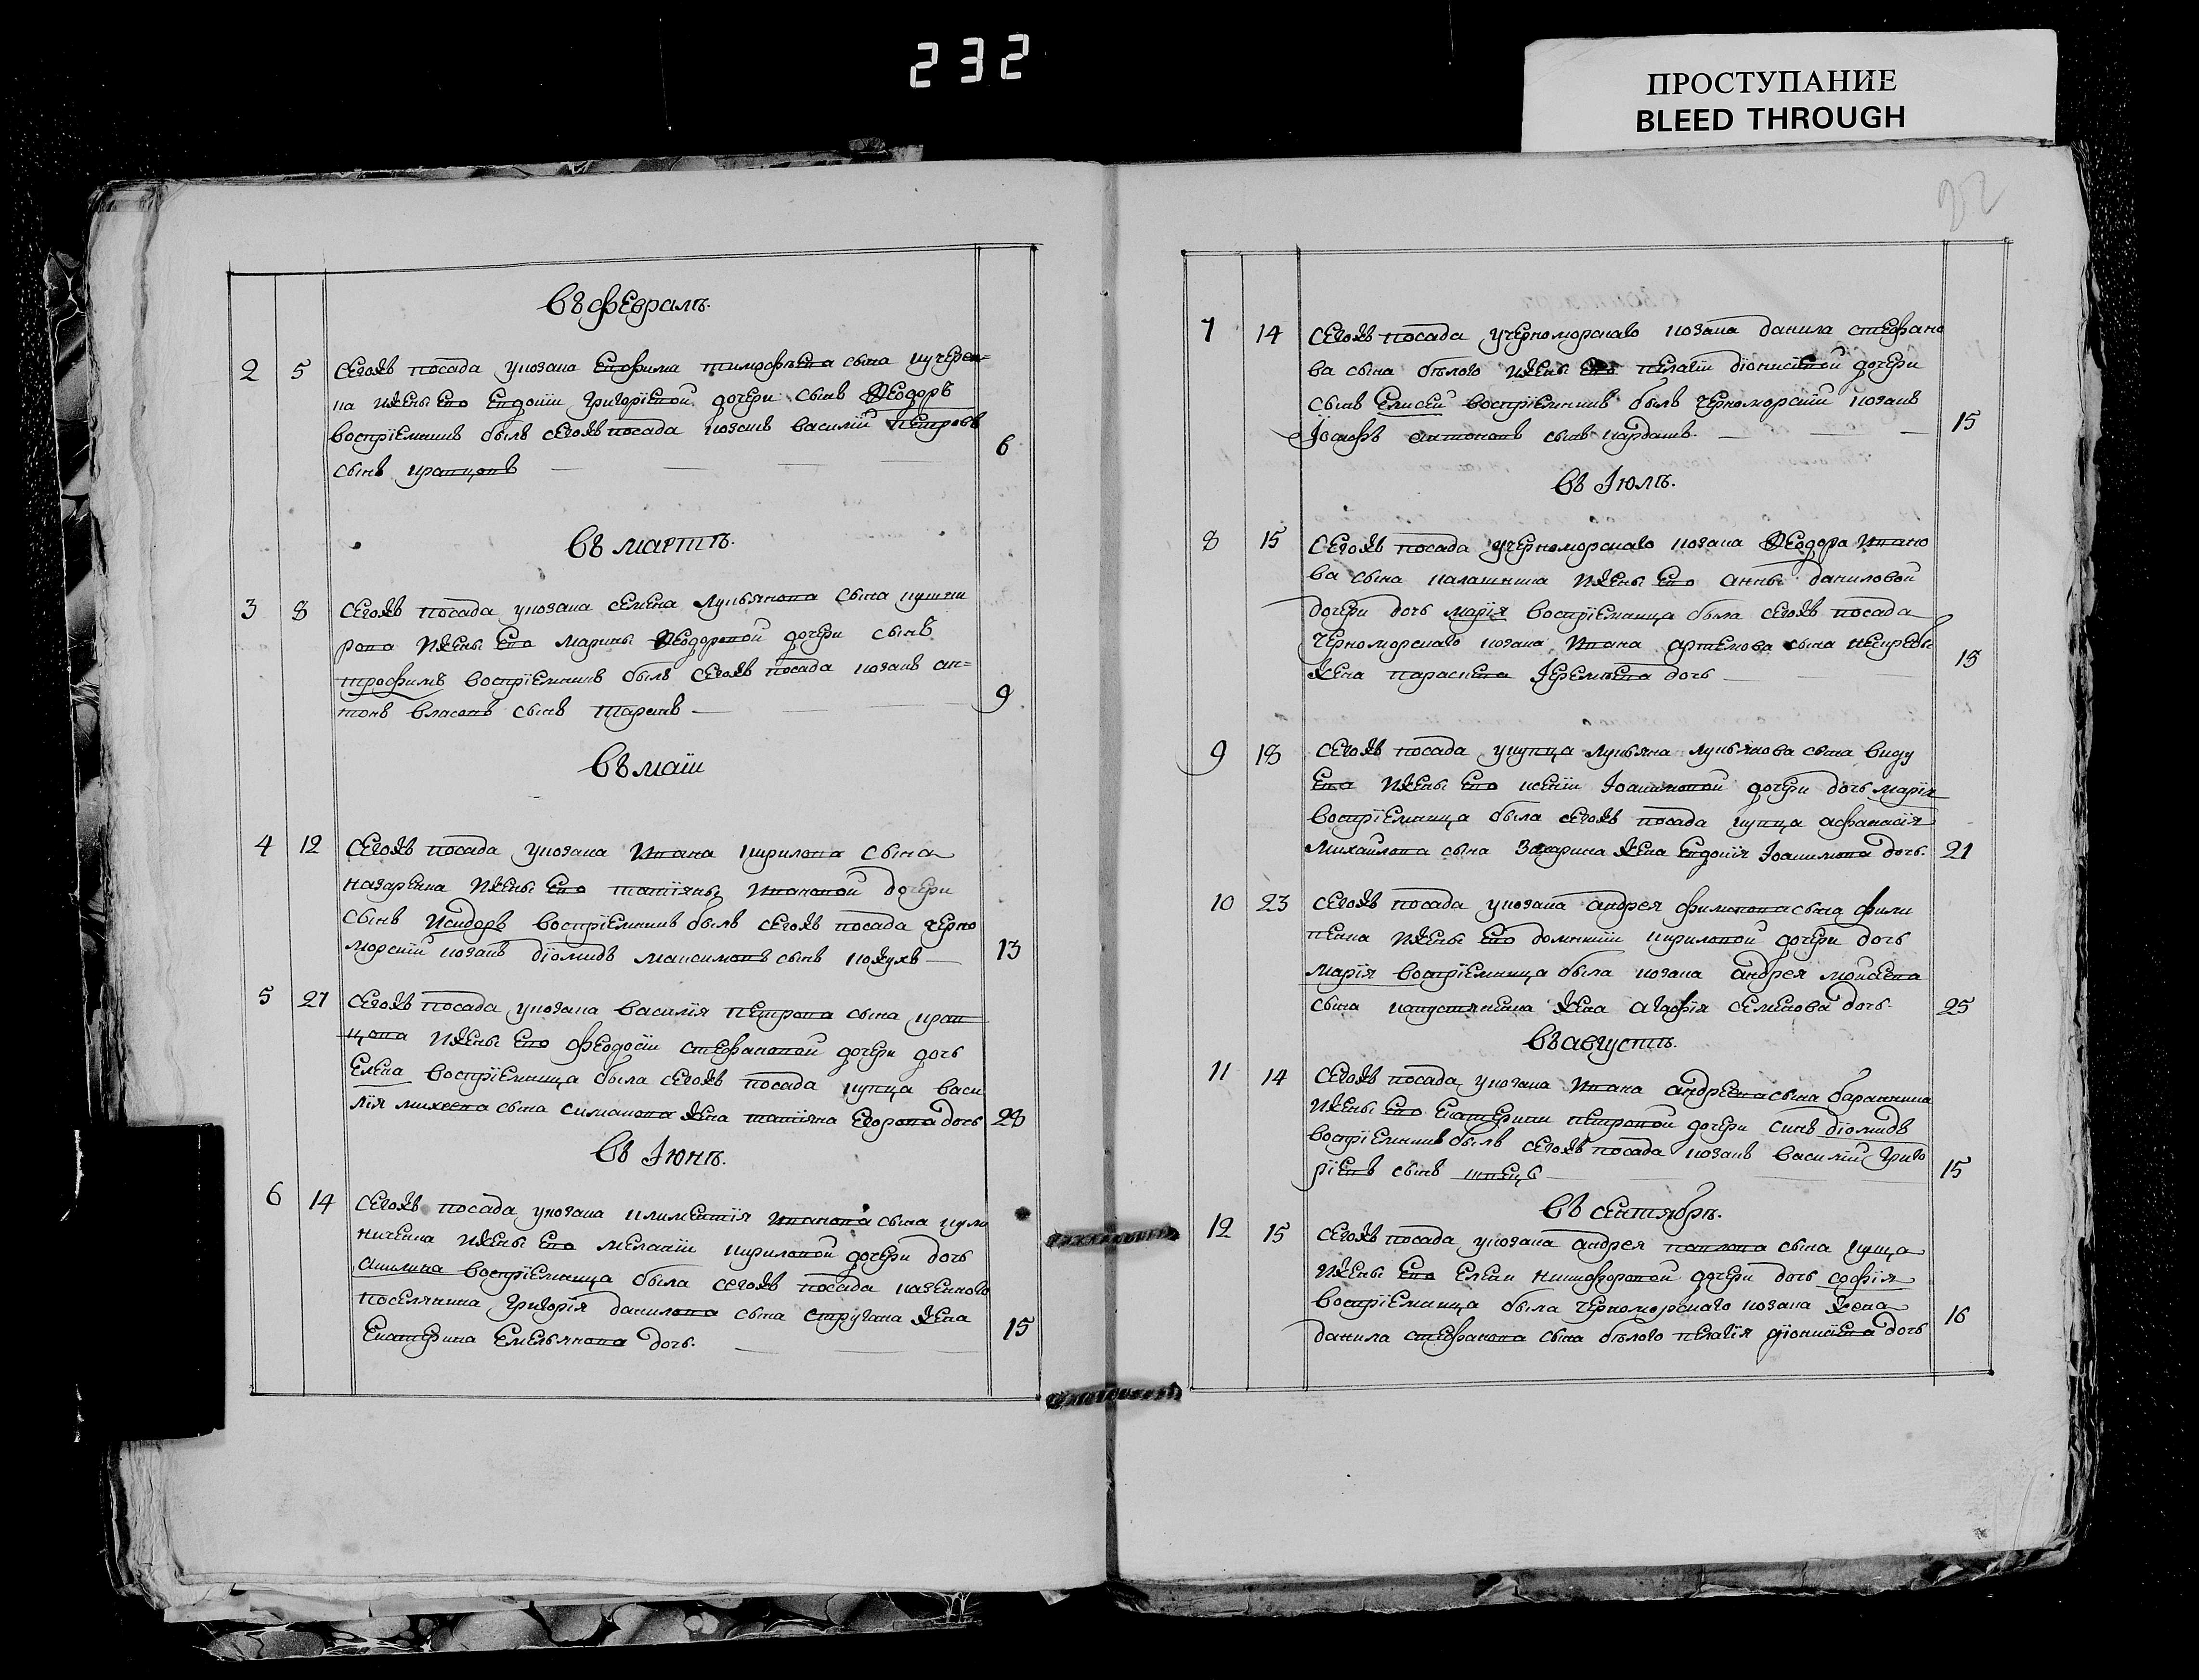 232
ПРОСТУПАНИЕ
BLEED THROUGH
Въ февралѣ.
2 5 Сегожъ посада у козака Евфима тимофѣева сына кучерен=
ка и жены его Евдокїи григорїевой дочери сынъ Ѳеодоръ
воспрїемникъ былъ сегожъ посада козакъ василїй петровъ
сынъ кравцовъ 6
Въ мартѣ.
3 8 Сегожъ посада у козака семена лукьянова сына кушни
рова и жены его марины Ѳеодоровой дочери сынъ
трофимъ воспрїемникъ былъ сегожъ посада козакъ ан=
тонъ власовъ сынъ 9
Въ маїи
4 12 Сегожъ посада у козака Ивана кирилова сына
назаренка и жены его татїяны Ивановой дочери
сынъ Исидоръ воспрїемникъ былъ сегожъ посада черно
морскїй козакъ дїомидъ максимовъ сынъ кожухъ 13
5 27 Сегожъ посада у козака василїя петрова сына крав
цова и жены его феодосїи стефановой дочери дочь
Елена воспрїемница была сегожъ посада купца васи
лїя михеева сына симакова жена татїяна Егорова дочь 28
Въ Іюнѣ.
6 14 Сегожъ посада у козака климентїя Иванова сына кули
ниченка и жены его меланїи кириловой дочери дочь
акилина воспрїемница была сегожъ посада казенного
поселянина григорїя данилова сына стругана жена
Екатерина Емельянова дочь. 15
7 14 Сегожъ посада у черноморскаго козака данила стефано
ва сына бѣлого и жены его пелагїи дїонисїевой дочери
сынъ Елисей воспрїемникъ былъ черноморскїй козакъ
Іосифъ антоновъ сынъ кардашъ. 15
Въ Іюлѣ.
8 15 Сегожъ посада у черноморскаго козака Ѳеодора Ивано
ва сына калашника и жены его анны даниловой
дочери дочь марїя воспрїемница была сегожъ посада
черноморскаго козака Ивана артемова сына
жена параскева Іеремѣева дочь 15
9 18 Сегожъ посада у купца лукьяна лукьянова сына
и жены его ксенїи Іоакимовой дочери дочь марїя
воспрїемница была сегожъ посада купца афанасїя
михайлова сына захарина жена Евдокїя Іоакимова дочь. 21
10 23 Сегожъ посада у козака андрея филипова сына фили
пенка и жены его домникїи кириловой дочери дочь
марїя воспрїемница была козака андрея мойсеева
сына капустянина жена агафїя семенова дочь 25
Въ августѣ.
11 14 Сегожъ посада у козака Ивана андреева сына баранника
и жены его Екатерины петровой дочери сынъ дїомидъ
воспрїемникъ былъ сегожъ посада козакъ василїй григо
рїевъ сынъ швецъ 15
Въ сентябрѣ.
12 15 Сегожъ посада у козака андрея павлова сына куща
и жены его Елени никифоровой дочери дочь софїя
воспрїемница была черноморскаго козака жена
данила стефанова сына бѣлого пелагїя дїонисїева дочь 16